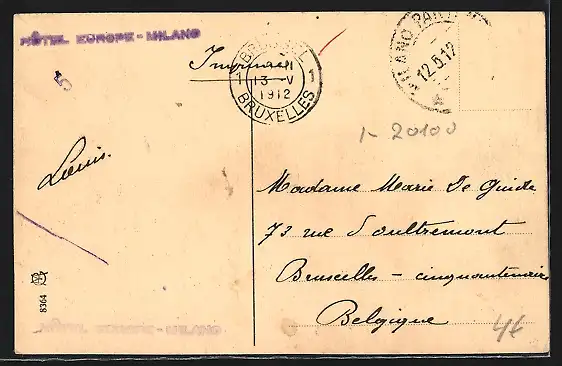 HÔTEL EUROPE - MILANO
Imprimé
BRUSSEL
1 1
13 - V
1912
BRUXELLES
MILANO PART
12.5.12
1- 20100
Louis.
Madame Marie De Guide
73 rue d'oultremont
Bruxelles - cinquantenaire
Belgique
8364
HÔTEL EUROPE - MILANO
4€